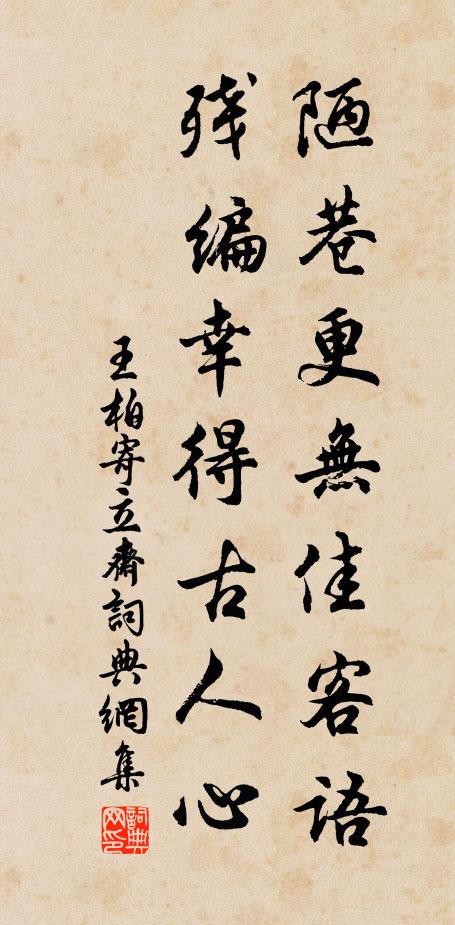 陋巷更無佳客語
残編幸得古人心
王柏寄立齋詞典網集
詞典网印